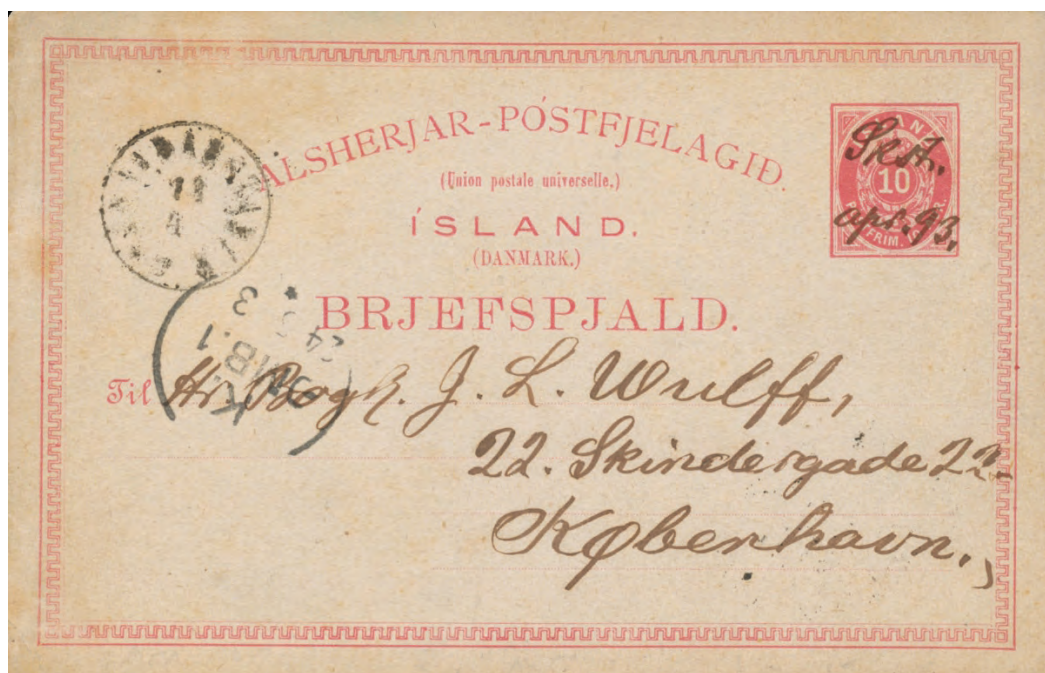 ALSHERJAR-PÓSTFJELAGIÐ.
(Union postale universelle.)
ÍSLAND.
(DANMARK.)
BRJEFSPJALD.
10
Skst.
apr. 93.
11
4
K
OMB. 1
24
3
Til Hr. Bogh. J. L. Wulff,
22. Skindergade 22,
København.,